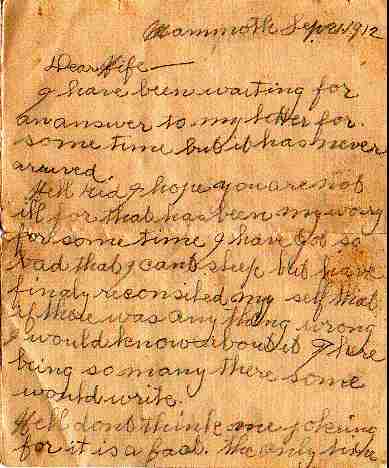 Mammoth Sep 21 1912
Dear Wife—
I have been waiting for
an answer to my letter for
some time but it has never
arived.
Well kid I hope you are not
ill for that has been my worry
for some time I have got so
bad that I cant sleep but have
finaly reconsiled my self that
if there was any thing wrong
I would know about it There
being so many there some
would write.
Well dont think me jokeing
for it is a fact. The only time